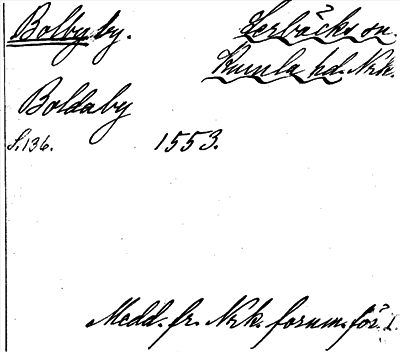 Bolbyby. Lerbäcks sn.
Kumla hd. Nrk.
Boldaby
S. 136. 1553.
Medd. fr. Nrk. fornm.för. I.